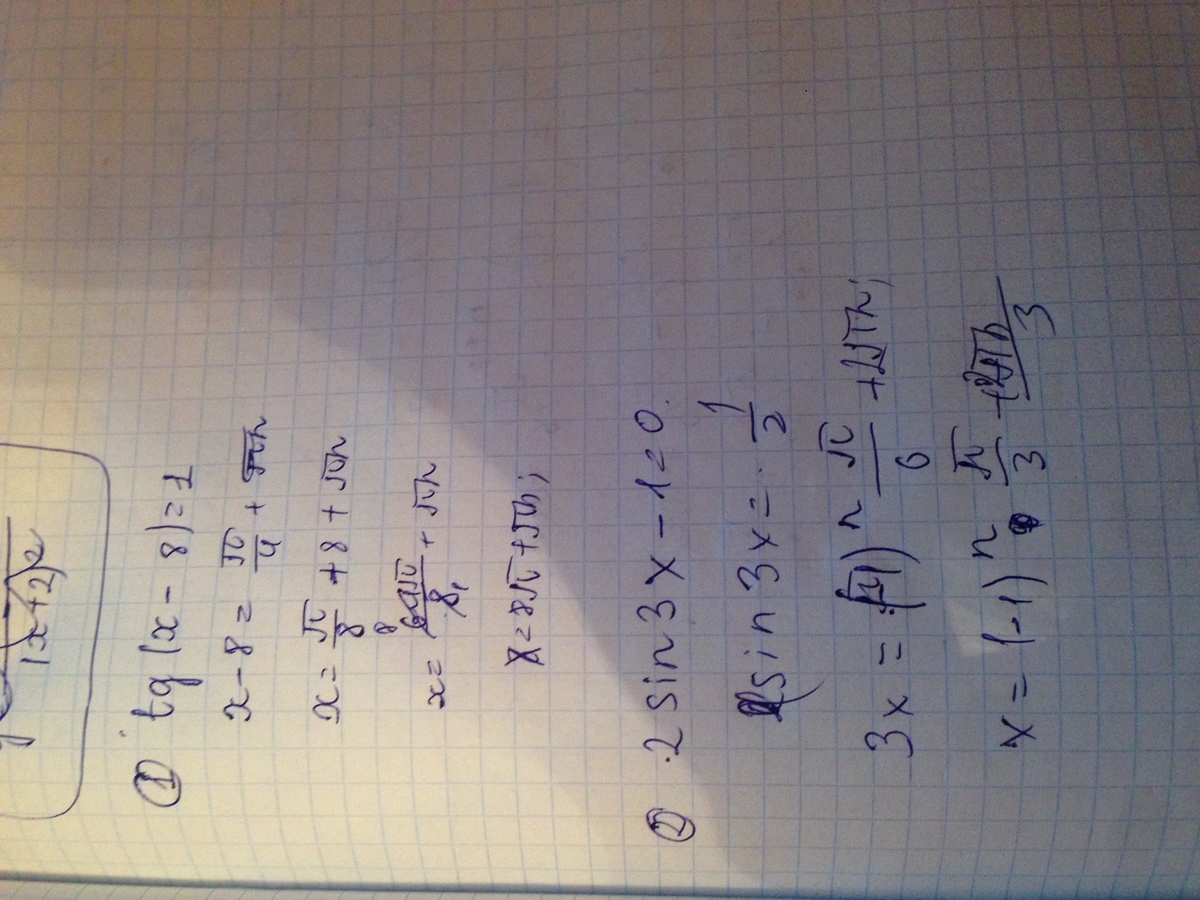 (x+2)²
① tg(x-8)=1
x-8=π/4+πn
x=π/8+8+πn
x=64π/8+πn
x=8π+πn;
② 2sin3x-1=0.
sin3x=1/2
3x=(-1)ⁿ π/6+2πn;
x=(-1)ⁿ π/3+2πn/3